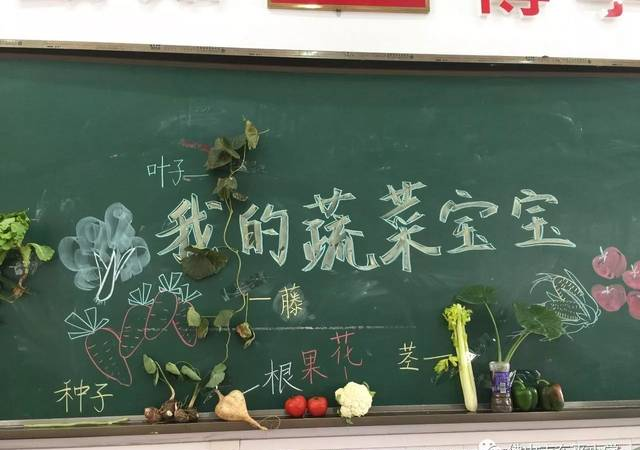 叶子
我的蔬菜宝宝
藤
种子
根
果
花
茎